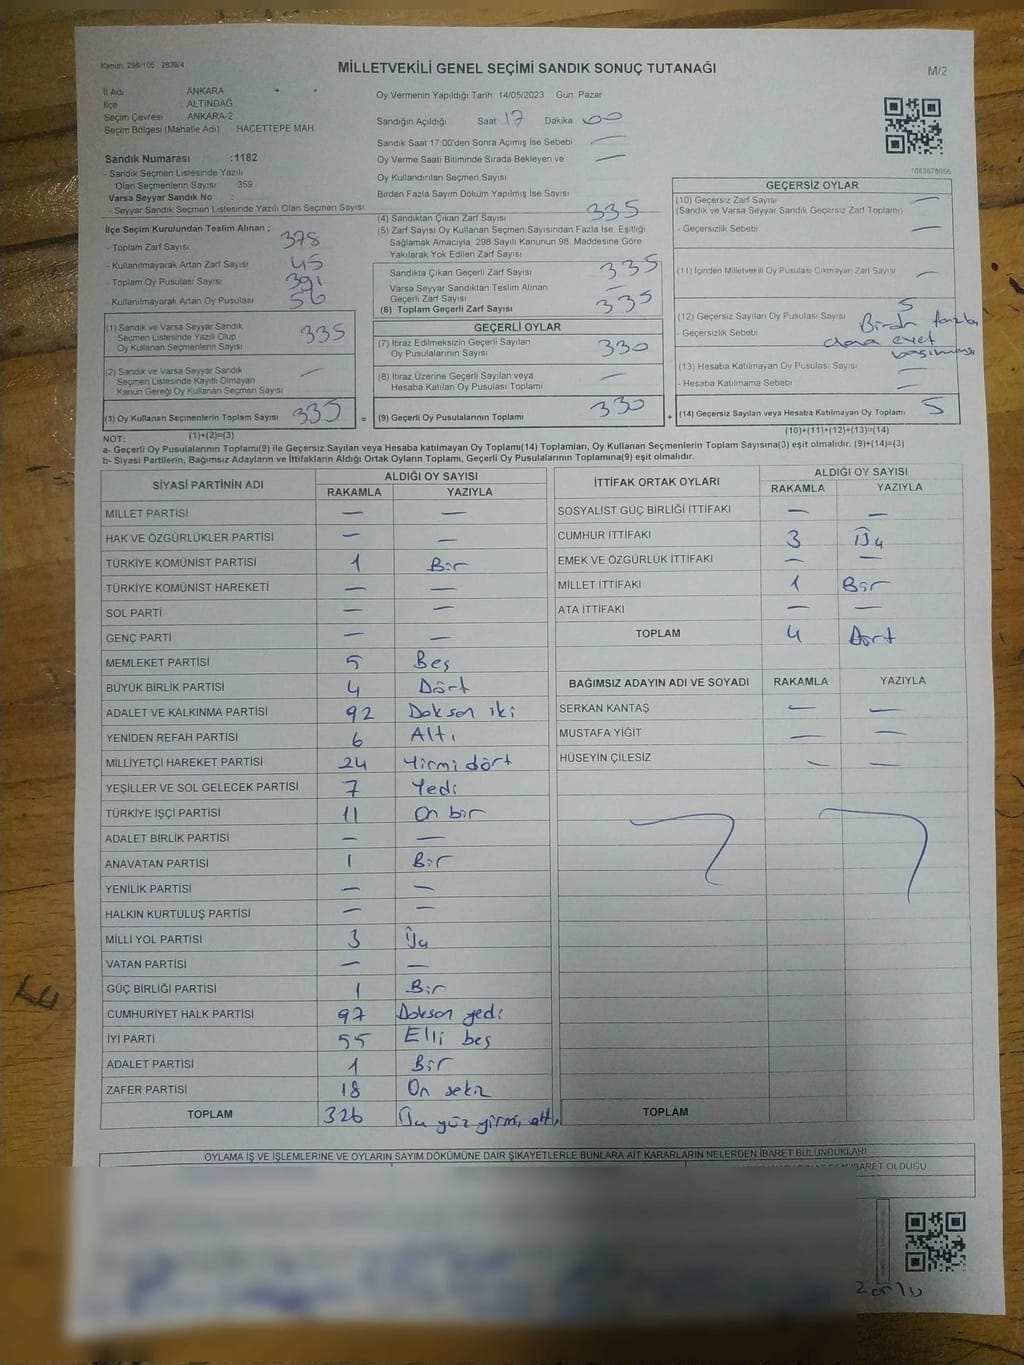 Kanun: 298/105 , 2839/4
MİLLETVEKİLİ GENEL SEÇİMİ SANDIK SONUÇ TUTANAĞI
M/2
İl Adı ANKARA
İlçe ALTINDAĞ
Seçim Çevresi ANKARA-2
Seçim Bölgesi (Mahalle Adı) HACETTEPE MAH.
Sandık Numarası :1182
- Sandık Seçmen Listesinde Yazılı
Olan Seçmenlerin Sayısı 359
Varsa Seyyar Sandık No :
- Seyyar Sandık Seçmen Listesinde Yazılı Olan Seçmen Sayısı
İlçe Seçim Kurulundan Teslim Alınan ;
- Toplam Zarf Sayısı 378
- Kullanılmayarak Artan Zarf Sayısı 45
- Toplam Oy Pusulası Sayısı 391
- Kullanılmayarak Artan Oy Pusulası 56
(1) Sandık ve Varsa Seyyar Sandık
Seçmen Listesinde Yazılı Olup
Oy Kullanan Seçmenlerin Sayısı 335
(2) Sandık ve Varsa Seyyar Sandık
Seçmen Listesinde Kayıtlı Olmayan
Kanun Gereği Oy Kullanan Seçmen Sayısı —
(3) Oy Kullanan Seçmenlerin Toplam Sayısı 335 =
(1)+(2)=(3)
Oy Vermenin Yapıldığı Tarih 14/05/2023 Gün Pazar
Sandığın Açıldığı Saat 17 Dakika 00
Sandık Saat 17:00'den Sonra Açımış İse Sebebi —
Oy Verme Saati Bitiminde Sırada Bekleyen ve —
Oy Kullandırılan Seçmen Sayısı
Birden Fazla Sayım Döküm Yapılmış İse Sayısı
(4) Sandıktan Çıkan Zarf Sayısı 335
(5) Zarf Sayısı Oy Kullanan Seçmen Sayısından Fazla İse, Eşitliği
Sağlamak Amacıyla, 298 Sayılı Kanunun 98. Maddesine Göre
Yakılarak Yok Edilen Zarf Sayısı
Sandıkta Çıkan Geçerli Zarf Sayısı 335
Varsa Seyyar Sandıktan Teslim Alınan
Geçerli Zarf Sayısı —
(6) Toplam Geçerli Zarf Sayısı 335
GEÇERLİ OYLAR
(7) İtiraz Edilmeksizin Geçerli Sayılan
Oy Pusulalarının Sayısı 330
(8) İtiraz Üzerine Geçerli Sayılan veya
Hesaba Katılan Oy Pusulası Toplamı —
(9) Geçerli Oy Pusulalarının Toplamı 330 +
1083678956
GEÇERSİZ OYLAR
(10) Geçersiz Zarf Sayısı —
(Sandık ve Varsa Seyyar Sandık Geçersiz Zarf Toplamı)
- Geçersizlik Sebebi —
(11) İçinden Milletvekili Oy Pusulası Çıkmayan Zarf Sayısı —
(12) Geçersiz Sayılan Oy Pusulası Sayısı 5
- Geçersizlik Sebebi Birden fazla
alana evet
basılması
(13) Hesaba Katılmayan Oy Pusulası Sayısı —
- Hesaba Katılmama Sebebi —
(14) Geçersiz Sayılan veya Hesaba Katılmayan Oy Toplamı 5
(10)+(11)+(12)+(13)=(14)
NOT:
a- Geçerli Oy Pusulalarının Toplam(9) ile Geçersiz Sayılan veya Hesaba katılmayan Oy Toplamı(14) Toplamları, Oy Kullanan Seçmenlerin Toplam Sayısına(3) eşit olmalıdır. (9)+(14)=(3)
b- Siyasi Partilerin, Bağımsız Adayların ve İttifakların Aldığı Ortak Oyların Toplamı, Geçerli Oy Pusulalarının Toplamına(9) eşit olmalıdır.
SİYASİ PARTİNİN ADI ALDIĞI OY SAYISI
RAKAMLA YAZIYLA
MİLLET PARTİSİ — —
HAK VE ÖZGÜRLÜKLER PARTİSİ — —
TÜRKİYE KOMÜNİST PARTİSİ 1 Bir
TÜRKİYE KOMÜNİST HAREKETİ — —
SOL PARTİ — —
GENÇ PARTİ — —
MEMLEKET PARTİSİ 5 Beş
BÜYÜK BİRLİK PARTİSİ 4 Dört
ADALET VE KALKINMA PARTİSİ 92 Doksan iki
YENİDEN REFAH PARTİSİ 6 Altı
MİLLİYETÇİ HAREKET PARTİSİ 24 Yirmi dört
YEŞİLLER VE SOL GELECEK PARTİSİ 7 Yedi
TÜRKİYE İŞÇİ PARTİSİ 11 On bir
ADALET BİRLİK PARTİSİ — —
ANAVATAN PARTİSİ 1 Bir
YENİLİK PARTİSİ — —
HALKIN KURTULUŞ PARTİSİ — —
MİLLİ YOL PARTİSİ 3 Üç
VATAN PARTİSİ — —
GÜÇ BİRLİĞİ PARTİSİ 1 Bir
CUMHURİYET HALK PARTİSİ 97 Doksan yedi
İYİ PARTİ 55 Elli beş
ADALET PARTİSİ 1 Bir
ZAFER PARTİSİ 18 On sekiz
TOPLAM 326 Üç yüz yirmi altı
İTTİFAK ORTAK OYLARI ALDIĞI OY SAYISI
RAKAMLA YAZIYLA
SOSYALİST GÜÇ BİRLİĞİ İTTİFAKI — —
CUMHUR İTTİFAKI 3 Üç
EMEK VE ÖZGÜRLÜK İTTİFAKI — —
MİLLET İTTİFAKI 1 Bir
ATA İTTİFAKI — —
TOPLAM 4 Dört
BAĞIMSIZ ADAYIN ADI VE SOYADI RAKAMLA YAZIYLA
SERKAN KANTAŞ — —
MUSTAFA YİĞİT — —
HÜSEYİN ÇİLESİZ — —
TOPLAM
OYLAMA İŞ VE İŞLEMLERİNE VE OYLARIN SAYIM DÖKÜMÜNE DAİR ŞİKAYETLERLE BUNLARA AİT KARARLARIN NELERDEN İBARET BULUNDUKLARI
İBARET OLDUĞU